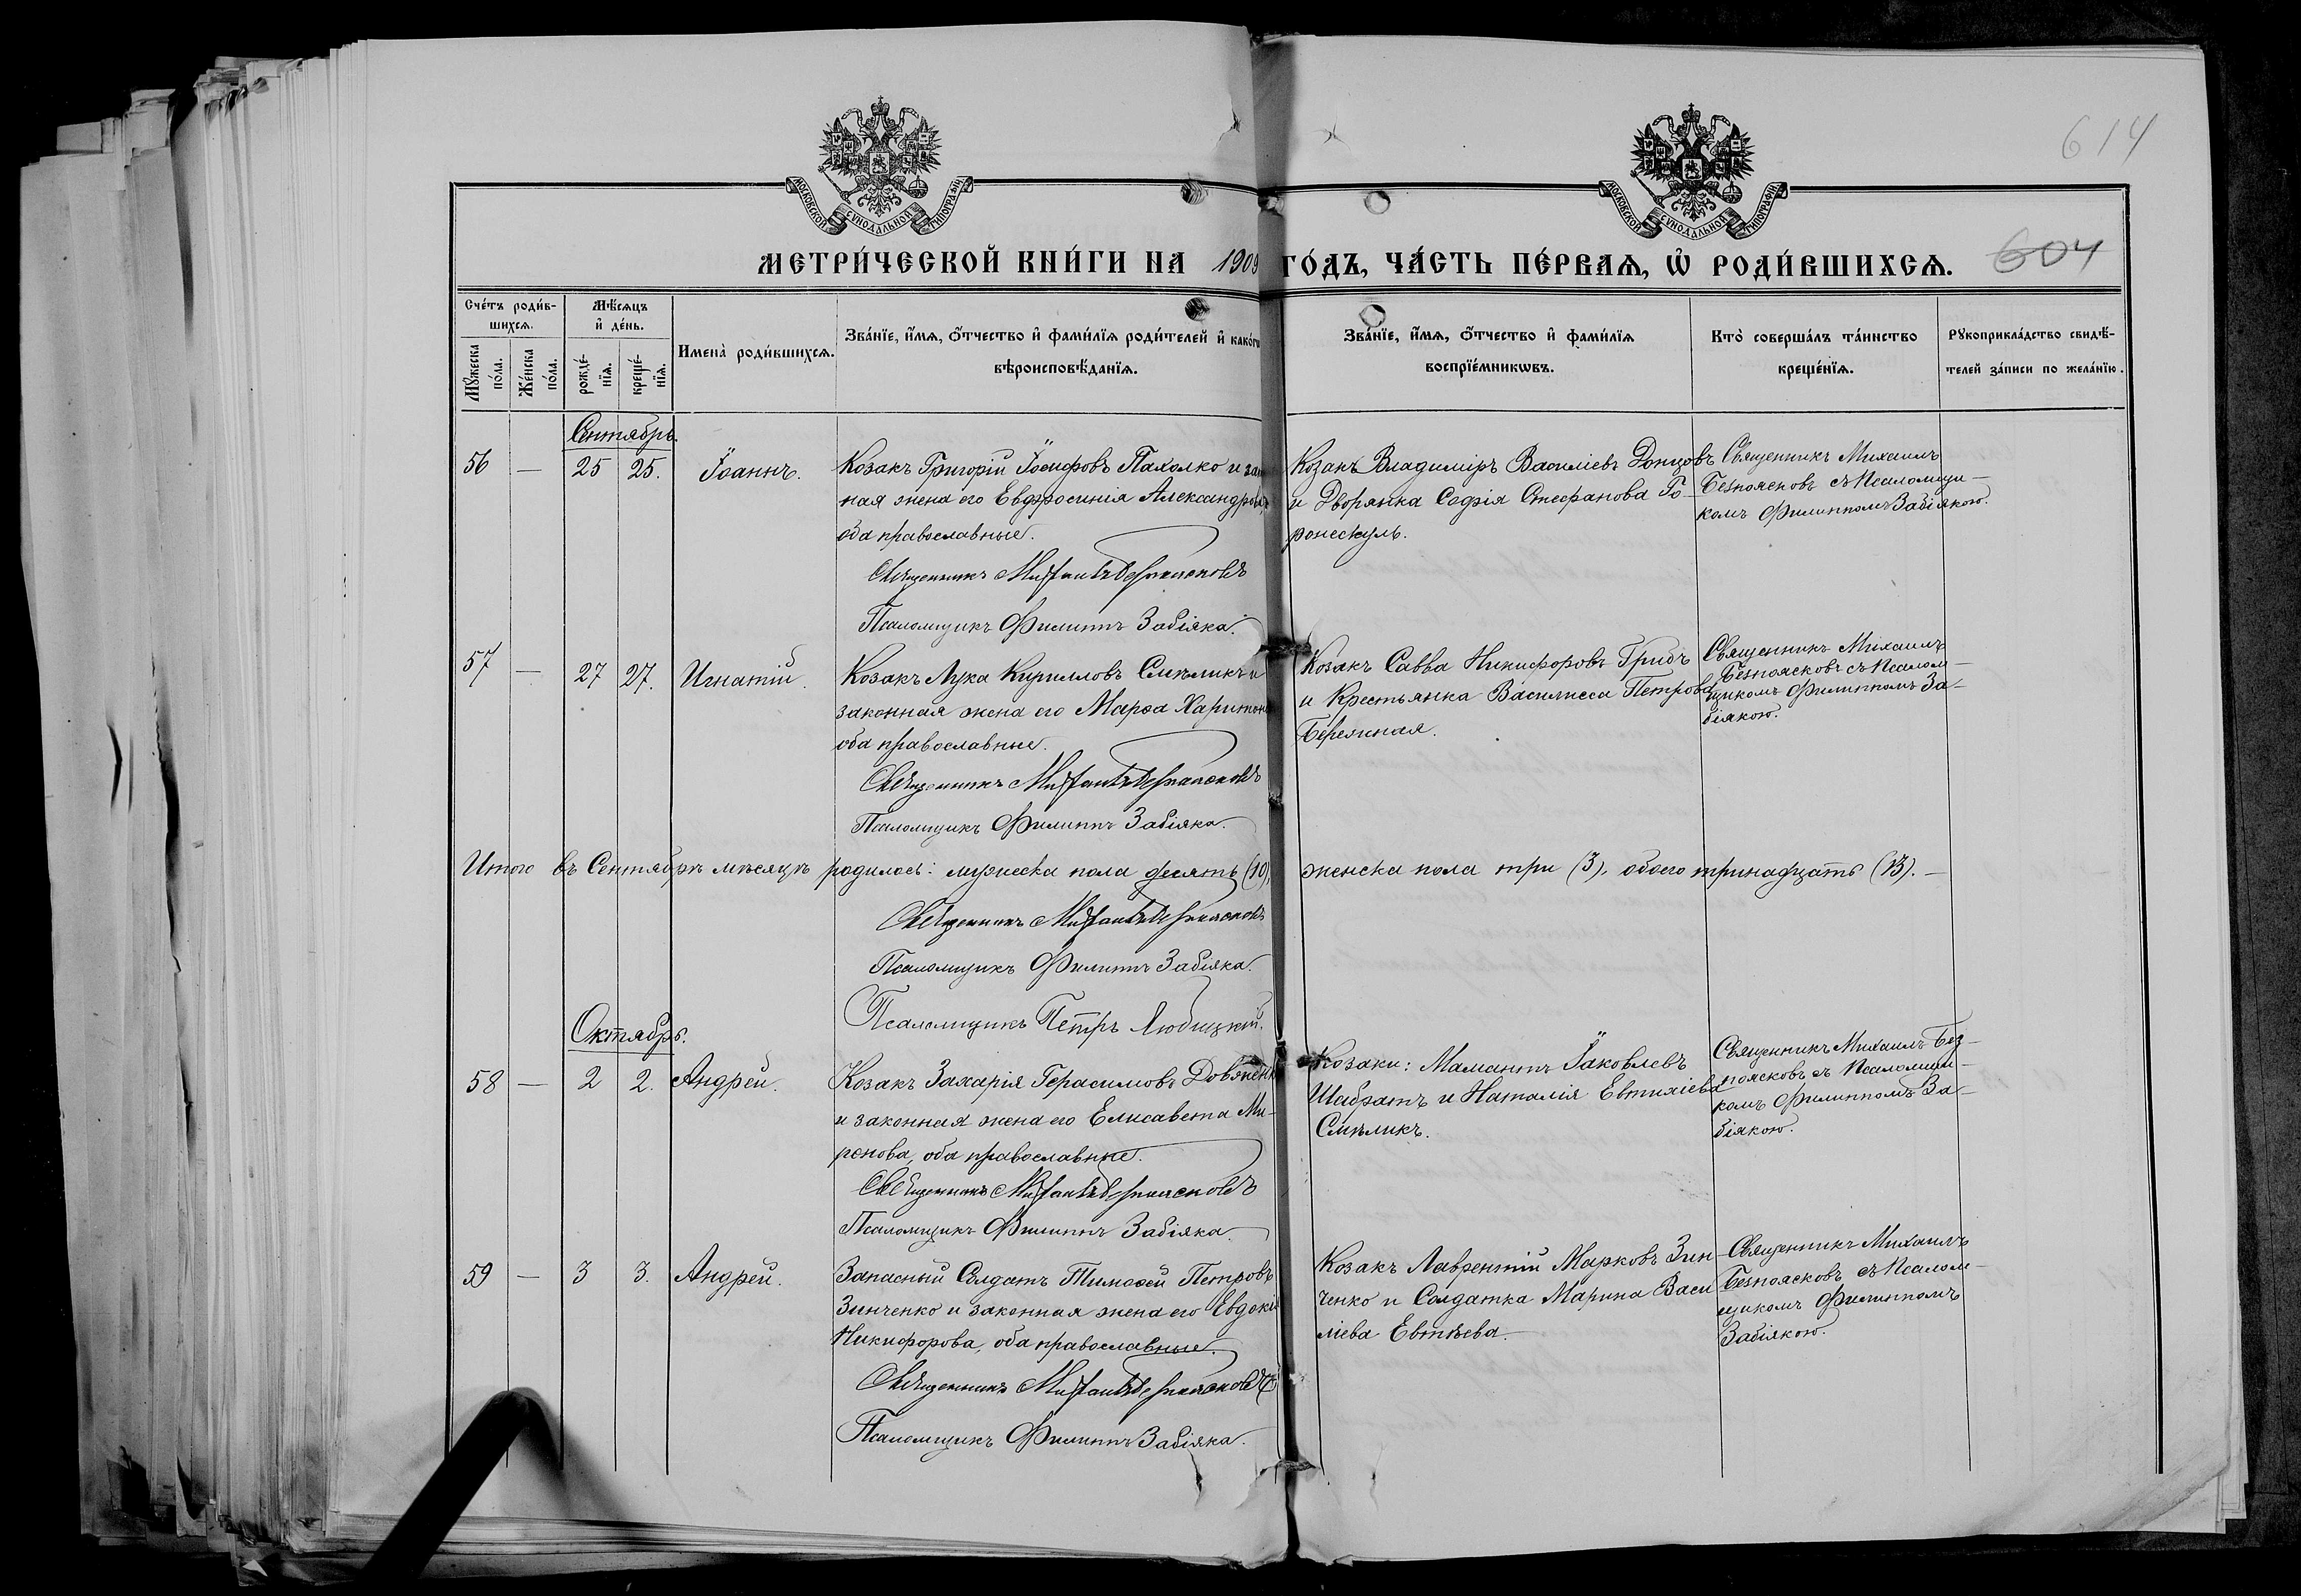 614
МОСКОВСКОЙ СУНОДАЛЬНОЙ ТИПОГРАФІИ
МОСКОВСКОЙ СУНОДАЛЬНОЙ ТИПОГРАФІИ
МЕТРИ́ЧЕСКОЙ КНИ́ГИ НА 1909 ГО́ДЪ, ЧА́СТЬ ПЕ́РВАѦ, Ѡ РОДИ́ВШИХСѦ. 604
Сче́тъ роди́в-
шихсѧ.
Мꙋ́жеска по́ла.
Же́нска по́ла.
Мѣ́сѧцъ
и̂ де́нь.
рожде́-
нїѧ.
креще́-
нїѧ.
Имена̀ роди́вшихсѧ.
Зва́нїе, и́мѧ, о́тчество и̂ фами́лїѧ роди́телей и̂ како́гѡ
вѣроисповѣ́данїѧ.
Зва́нїе, и́мѧ, о́тчество и̂ фами́лїѧ
воспрїе́мникѡвъ.
Кто̀ соверша́лъ та́инство
креще́нїѧ.
Рꙋкоприкла́дство свидѣ́-
телей за́писи по жела́нїю.
Сентябрь.
56 — 25 25. Іоаннъ.
Козакъ Григорій Іосифовъ Пахолко и закон
ная жена его Евдфросинія Александрова,
оба православные.
Священникъ Михаилъ Безпоясковъ
Псаломщикъ Филиппъ Забіяка.
Козакъ Владиміръ Василіевъ Донцовъ
и Дворянка Софія Стефанова Го-
ронескуль.
Священникъ Михаилъ
Безпоясковъ съ Псаломщи-
комъ Филиппомъ Забіякою.
57 — 27 27. Игнатій.
Козакъ Лука Кирилловъ Смѣликъ и
законная жена его Марѳа Харитонова
оба православные.
Священникъ Михаилъ Безпоясковъ
Псаломщикъ Филиппъ Забіяка.
Козакъ Савва Никифоровъ Грибъ
и Крестьянка Василисса Петрова
Бережная.
Священникъ Михаилъ
Безпоясковъ съ Псалом-
щикомъ Филиппомъ За-
біякою.
Итого въ Сентябрѣ мѣсяцѣ родилось: мужеска пола десять (10), женска пола три (3), обоего тринадцать (13). —
Священникъ Михаилъ Безпоясковъ
Псаломщикъ Филиппъ Забіяка.
Псаломщикъ Петръ Любицкій.
Октябрь.
58 — 2 2. Андрей.
Козакъ Захарія Герасимовъ Довженко
и законная жена его Елисавета Ми-
ронова, оба православные.
Священникъ Михаилъ Безпоясковъ
Псаломщикъ Филиппъ Забіяка.
Козаки: Мамантъ Іаковлевъ
Шабратъ и Наталія Евтихіева
Смѣликъ.
Священникъ Михаилъ Без-
поясковъ съ Псаломщи-
комъ Филиппомъ За-
біякою.
59 — 3 3. Андрей.
Запасный Солдатъ Тимоѳей Петровъ
Зинченко и законная жена его Евдокія
Никифорова, оба православные.
Священникъ Михаилъ Безпоясковъ
Псаломщикъ Филиппъ Забіяка.
Козакъ Лаврентій Марковъ Зин-
ченко и Солдатка Марина Васи
ліева Евтѣева.
Священникъ Михаилъ
Безпоясковъ съ Псалом-
щикомъ Филиппомъ
Забіякою.